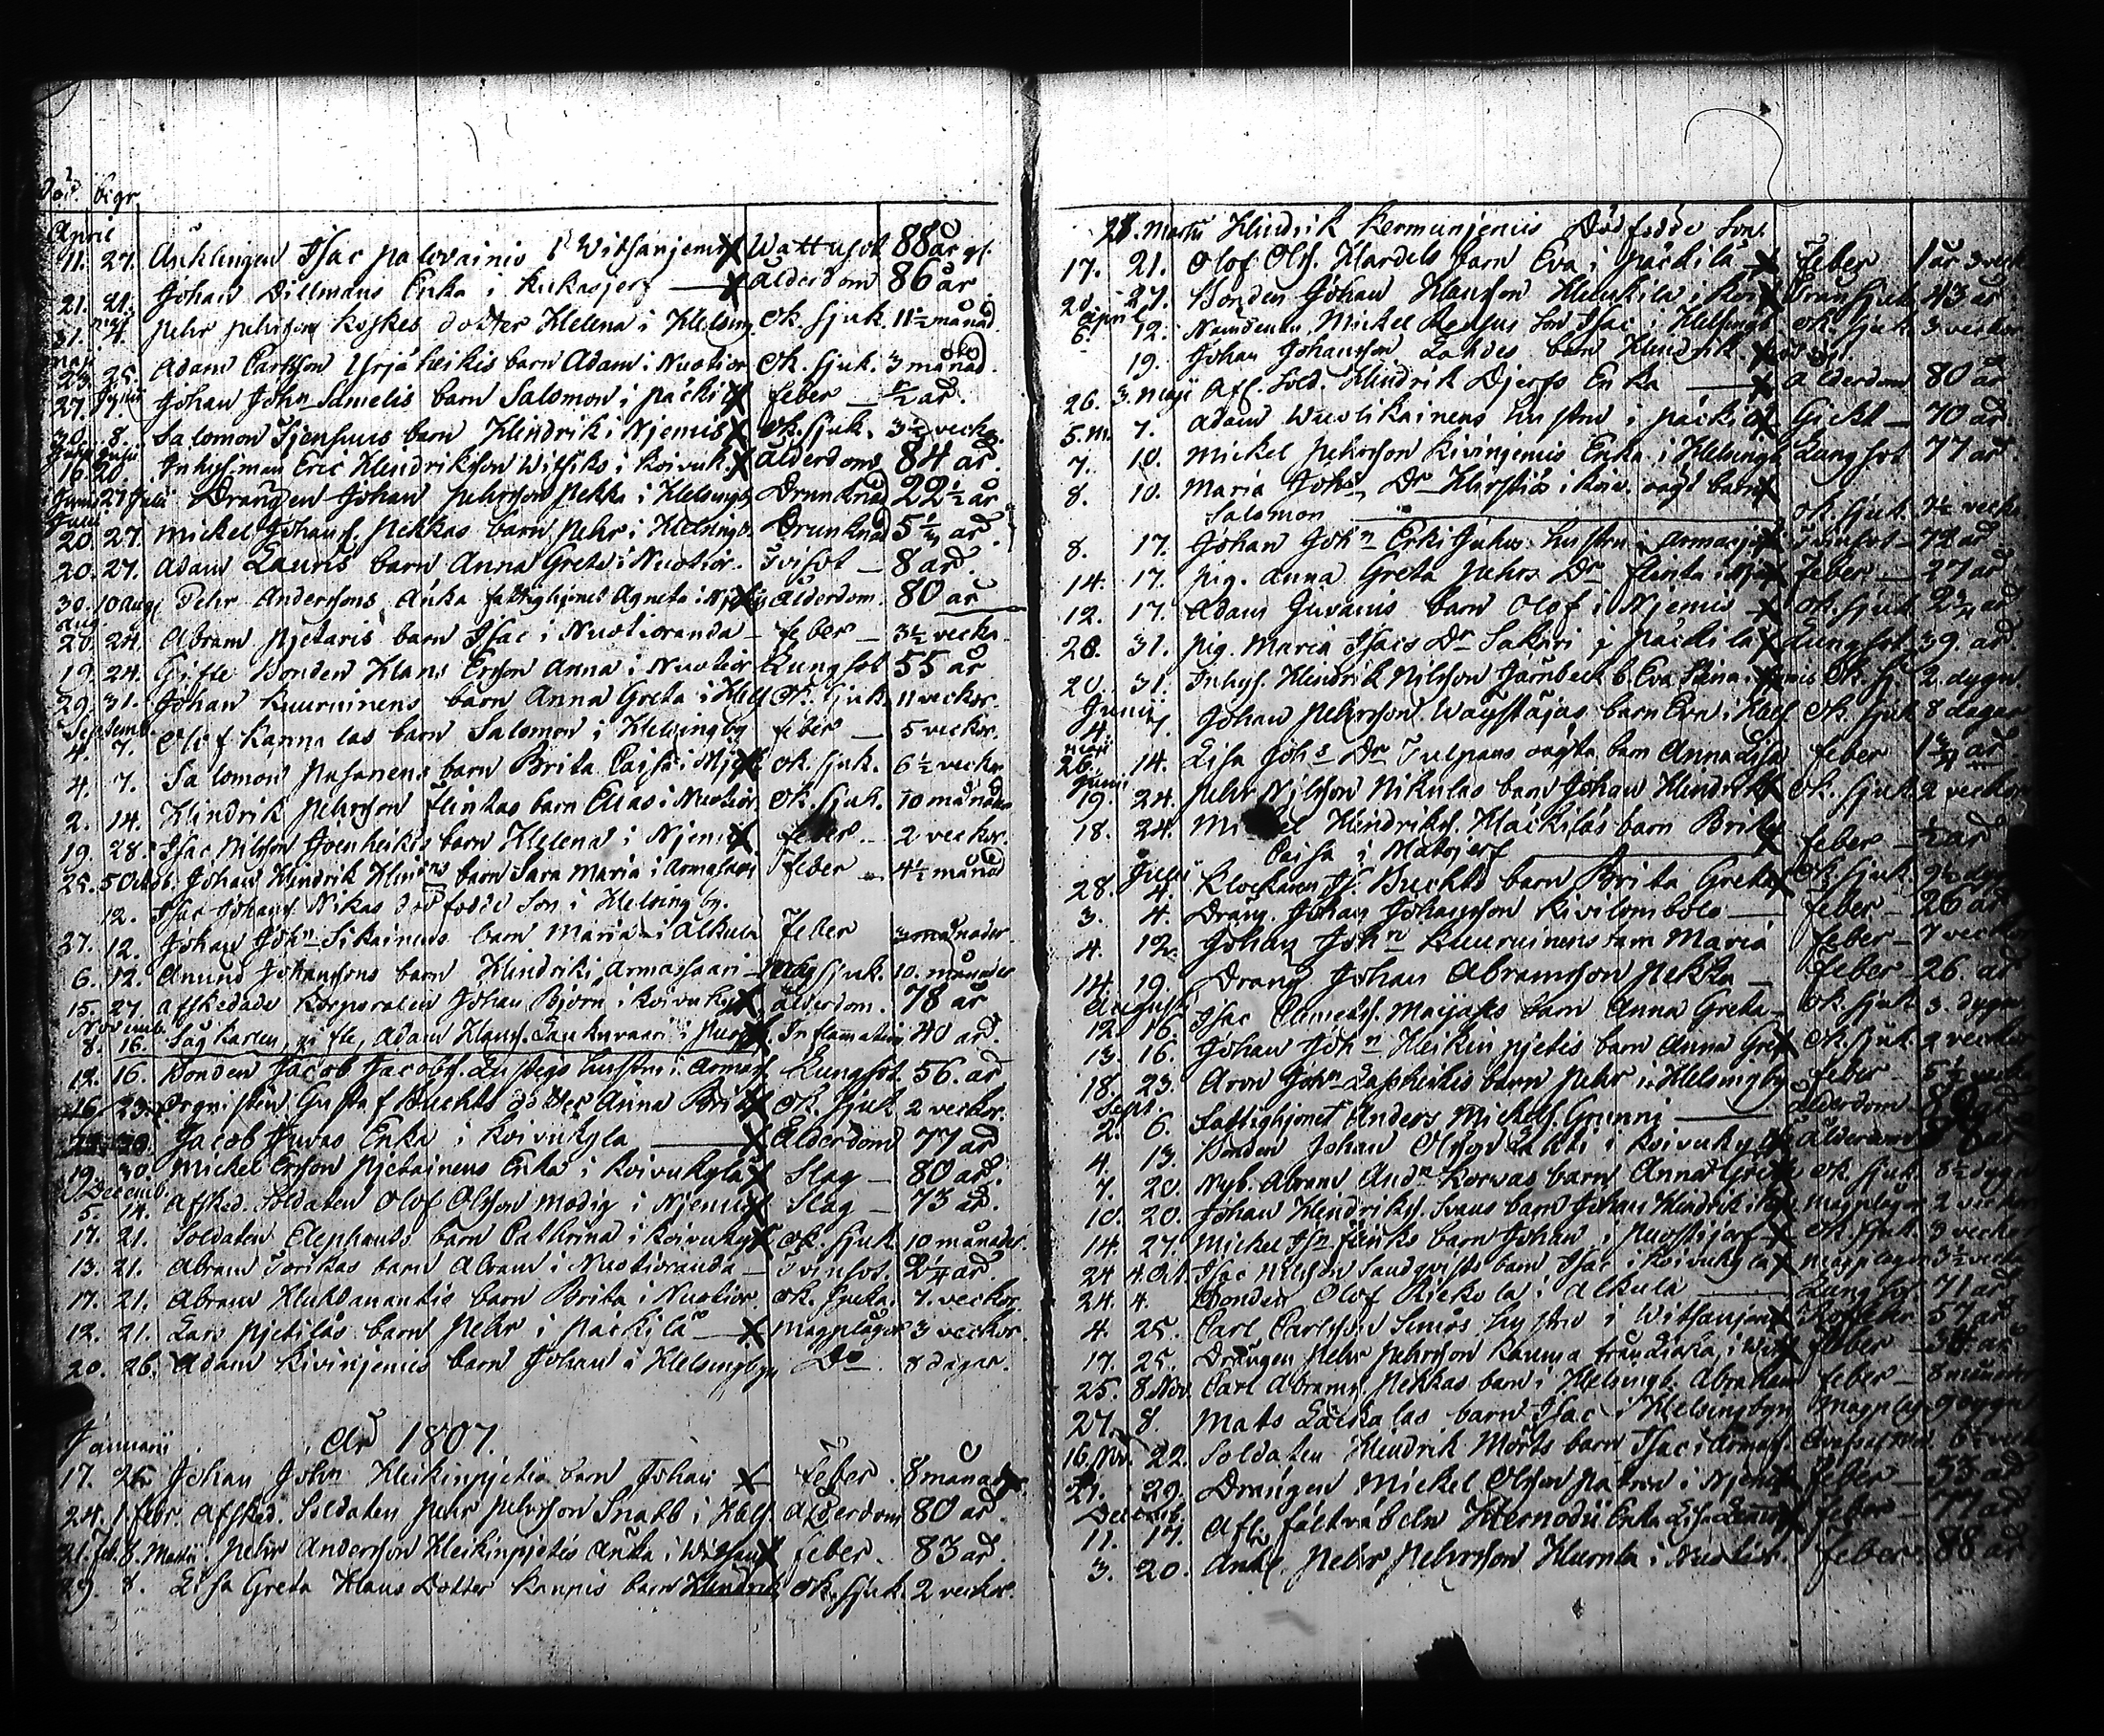 Död. begr.
April
11. 27. Änklingen Isac Palovainio i Witsanjemi X Wattusot 88 år gl.
21. 21. Johan Dillmans Enka i Kukasjerf — X Ålderdom 86 år
31. maj 4. Pehr Pehrsson Koskes dotter Helena i Helsing. Ok. sjuk. 11½ månad.
maji
23. 25. Adam Carlsson Yrjäheikis barn Adam i Nuotior. Ok. sjuk. 3 månad.
27. Junii 7. Johan Johns Samelis barn Salomon i Päckilä X feber — ½ år.
30. 8. Salomon barn Hindrik i Njemis X Ok. sjuk. 3½ veckr.
Junii Julii
16. 20. Inhys.man Eric Hindriksson Witsiks i Koivuk. X ålderdom 84 år.
Junii 27 Julii Drängen Johan Pehrsson Pekka i Helsingb. Drunknad 22½ år
Julii
20. 27. Mickel Johans. Pekkas barn Pehr i Helsingb. Drunknad 5½ år.
20. 27. Adam Lauris barn Anna Greta i Nuotior. Tvisot — 8 år.
30. 10 Aug. Pehr Anderssons Änka fattighjonet Agneta i Njemis ålderdom. 80 år
Aug.
20. 24. Abram Pjetaris barn Isac i Nuotioranda — feber — 3½ vecka.
19. 24. Gifte Bonden Klans Ersson Anna i Nuotior Lungsot 55 år
29. 31. Johan Kuuruinens barn Anna Greta i Hels Ok. sjuk. 11 veckor.
Septemb.
4. 7. Olof Kannalas barn Salomon i Helsingby feber — 5 veckor.
4. 7. Salomon Pasanens barn Brita Caisa i Nje X Ok. sjuk. 6½ veckor
2. 14. Hindrik Pehrsson Flinkas barn Elias i Nuotior Ok. sjuk. 10 månader
19. 28. Isac Nilsson Joenheikis barn Helena i Njemis X feber — 2 veckor.
25. 5 Octob. Johan Hindrik Hindrs barn Sara Maria i Armassari Feber — 4½ månad
12. Isac Johans. Nikas dödfödde Son i Helsingby.
27. 12. Johan Johns Sikainens barn Maria i Alkula Feber 3 månader
6. 12. Anund Johanssons barn Hindrik i Armassaari — sjuk. 10. månader
15. 27. Afskedade Korporalen Johan Björn i Koivukyl X ålderdom. 78 år
Novemb.
8. 16. Sågkarlen, gifte, Adam Klans. i Puost X Inflammation 40 år.
12. 16. Bonden Jacob Jacobs. hustru i Armas. Lungsot 56. år
16. 23. Organisten Gustaf Buchts dotter Anna Brit X Ok. sjuk 2 veckor.
30. Jacob Juvas Enka i Koivukyla — X Ålderdom 77 år
19. 30. Mickel Ersson Pjetainens Enka i Koivukyla X Slag — 80 år.
Decemb.
5. 14. Afsked. Soldaten Olof Olsson Modig i Njemis X Slag — 73 år.
17. 21. Soldaten Elephants barn Cathrina i Koivukyl X Ok. sjuk. 10 månader.
13. 21. Abram Torikas barn Abram i Nuotioranda — Tvinsot. 2¼ år.
17. 21. Abram barn Brita i Nuotior. Ok. sjuka. 7. veckor.
12. 21. Lars Pjetiläs barn Pehr i Päckilä — X Magplågor 3 veckor.
20. 26. Adam Kivinjemis barn Johan i Helsingbyn Do 8 dagar.
År 1807.
Januarii
17. 26. Johan Johns Heikinpjetis barn Johan X feber. 8 månader
24. 1 febr. Afsked. Soldaten Pehr Pehrsson Snabb i Hels. ålderdom 80 år.
21. Feb. 8. Martii. Pehr Andersson Heikinpjetis Änka i Witsan X feber. 83 år.
8. Lisa Greta Klans Dotter Kaupis barn Hindrik Ok. sjuk. 2 veckor.
28. Martii Hindrik Kermunjemis Dödfödde Son.
17. 21. Olof Ols. Hardels barn Eva i Päckilä X Feber 1 år 3 veck
20. 27. Bonden Johan Hansson i Koi X Bransjuk. 43 år
April
6. 12. Nämdeman Mickel son Isac i Helsingb. Ok. sjuk. 3 veckor
19. Johan Johansson Lahdes barn Hindrik X
26. 3. Maji Afl. Sold. Hindrik Djerfs Enka — X ålderdom 80 år
5. m. 7. Adam Wuolikainens hustru i Päckil X Gickt — 70 år.
7. 10. Mickel Pehrsson Kivinjemis Enka i Helsingb Lungsot 77 år
8. 10. Maria Johs Dr i Koiv. oägt barn X
Salomon — Ok. sjuk veck
8. 17. Johan Johns Erki Juhus hustru i Armasj X Tvinsot — 72 år
14. 17. Pig. Anna Greta Pehrs Dr Flinka i Nje X Feber — 27 år
12. 17. Adam Juvanis barn Olof i Njemis — X Ok. sjuk 2¾ år
20. 31. Pig. Maria Isacs Dr Sakari i Päckilä X Lungsot 39. år
20. 31. Inhys. Hindrik Nilsson Järnbeck b. Eva Stina i Ok. Sj. 2. dygn.
Junii
4. 7. Johan Pehrsson barn Eva i Hels Ok. sjuk 8 dagar
maji
26. 14. Lisa Johs Dr Tulpans oägta barn Anna Lisa feber 1¾ år
Junii
19. 24. Pehr Nilsson Nikulas barn Johan Hindrik X Ok. sjuk 2 veckor
18. 24. Mickel Hindriks. Häckiläs barn Brita
Caisa i Matojerf — X feber — ½ år
Julii
28. 4. Klockaren Is. Buchts barn Brita Greta X Ok. sjuk dygn
3. 4. Dräng. Johan Johansson Kivilombolo — feber — 26 år
4. 12. Johan Johns Kuuruinens barn Maria feber — 7 veckor
14. 19. Dräng Johan Abramsson Pekka — feber — 26. år
Augusti
12. 16. Isac Clemets. barn Anna Greta — Ok. sjuk 3. dygn
13. 16. Johan Johns Heikinpjetis barn Anna Gre X Ok. sjuk. 2 veckor
18. 23. Aron Johns Lassheikis barn Pehr i Helsingby feber — 5½ veck
Sept.
2. 6. Fattighjonet Anders Mickels. Grunni — ålderdom år
4. 13. Bonden Johan Olsson Lahti i Koivukyl X ålderdom år
7. 20. Nyb. Abram Ands Korvas barn Anna Gre X Ok. sjuk 8½ dygn
10. 20. Johan Hindriks. Svans barn Johan Hindrik i Magplågor 2 veckor
14. 27. Mickel barn Johan i Puostijerf X Ok. sjuk. 3 veckor
24 4. Oct. Isac Nilsson Sandqvists barn Isac i Koivukyla X Magplågor 3½ veck
24. 4. Bonden Olof Rickola i Alkula — Lungsot 71 år
4. 25. Carl Carlsson Simos hustru i Witsanjem X 57 år
17. 25. Drängen Pehr Pehrsson Kauma i Wits X feber — 34. år
25. 8. Nov. Carl Abrams. Pekkas barn i Helsingb. Abraham feber — 8 månader
27. 8. Mats Läckalas barn Isac i Helsingbyn Magplåg. 9 dygn
16. Nov. 22. Soldaten Hindrik Mörts barn Isac i Armas. veck
21. 29. Drängen Mickel Olsson i Njemis X feber — 33 år
Decemb.
11. 17. Afl. fältväbeln Hernodii Enka Lisa X feber — 77 år
3. 20. Ankl. Pehr Pehrsson i Nuotior. feber. 88 år